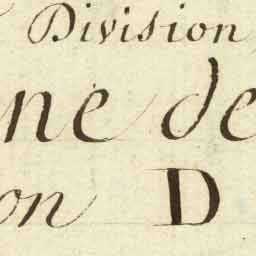 Division
ne de
on D